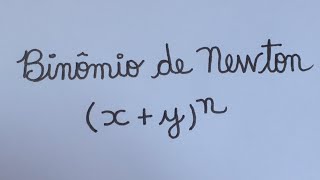 Binômio de Newton
(x + y)ⁿ